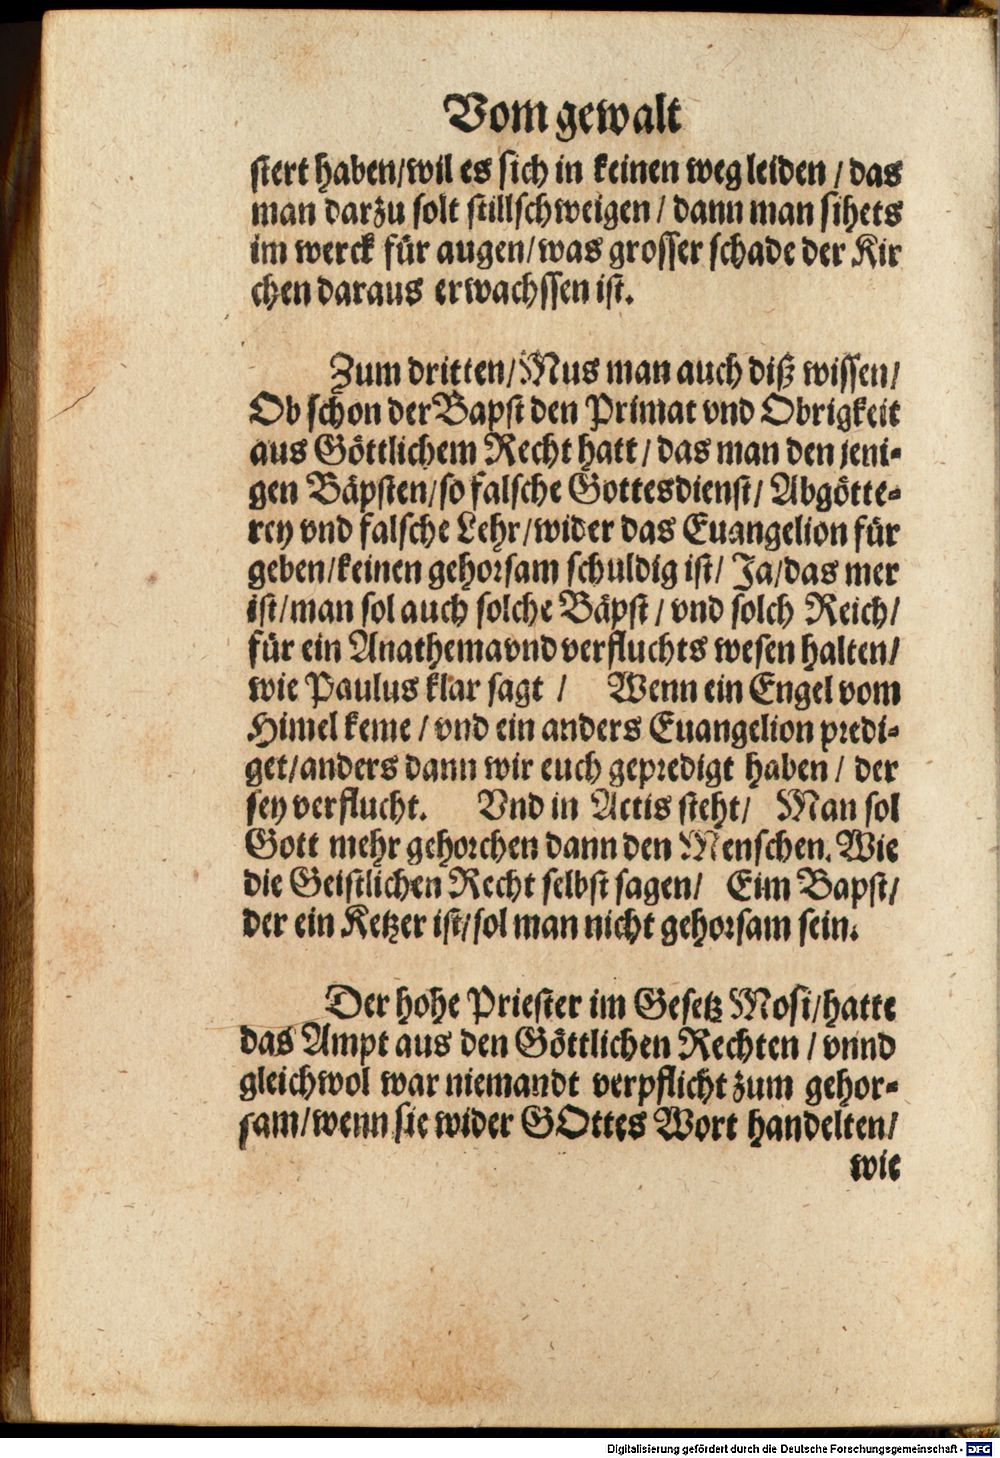 Vom gewalt
stert haben/wil es sich in keinen weg leiden / das
man darzu solt stillschweigen / dann man sihets
im werck für augen/was grosser schade der Kir
chen daraus erwachssen ist.
Zum dritten/Mus man auch diß wissen/
Ob schon der Bapst den Primat vnd Obrigkeit
aus Göttlichem Recht hatt / das man den jeni-
gen Bäpsten/so falsche Gottesdienst/ Abgötte-
rey vnd falsche Lehr/wider das Euangelion für
geben/keinen gehorsam schuldig ist/ Ja/das mer
ist/man sol auch solche Bäpst / vnd solch Reich/
für ein Anathemavnd verfluchts wesen halten/
wie Paulus klar sagt / Wenn ein Engel vom
Himel keme / vnd ein anders Euangelion predi-
get/anders dann wir euch gepredigt haben / der
sey verflucht. Vnd in Actis steht/ Man sol
Gott mehr gehorchen dann den Menschen. Wie
die Geistlichen Recht selbst sagen/ Eim Bapst/
der ein Ketzer ist/sol man nicht gehorsam sein.
Der hohe Priester im Gesetz Mosi/hatte
das Ampt aus den Göttlichen Rechten / vnnd
gleichwol war niemandt verpflicht zum gehor-
sam/wenn sie wider GOttes Wort handelten/
wie
Digitalisierung gefördert durch die Deutsche Forschungsgemeinschaft - DFG